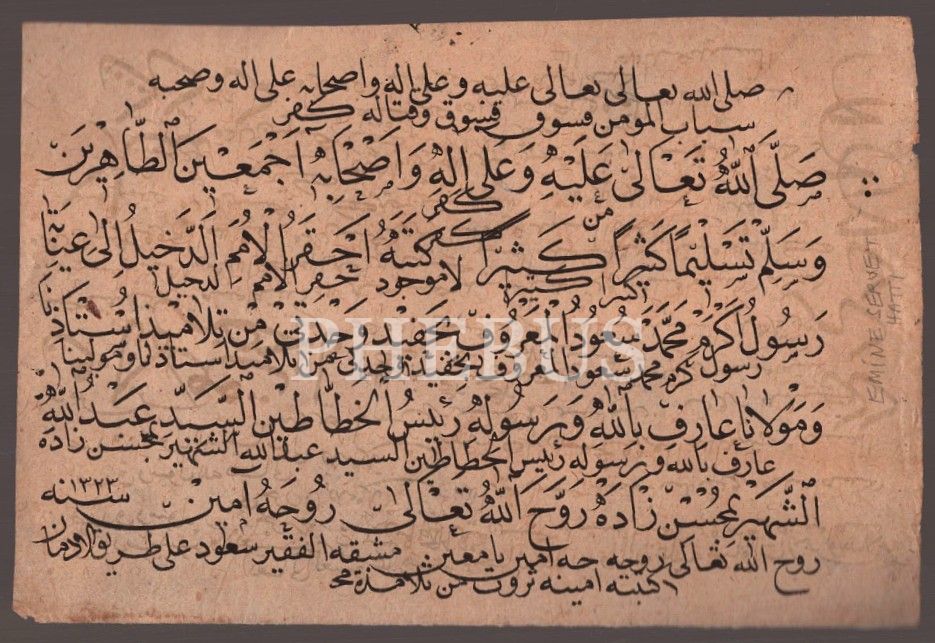 صلى الله تعالى تعالى عليه و على اله واصحابه على اله وصحبه
سباب المؤمن فسوق فسوق وقتاله كفر
صَلَّى ٱللّٰهُ تَعَالىٰ عَلَيْهِ وَعَلىٰ اٰلِهِ وَاَصْحَابِهِ اَجْمَعِينَ ٱلطَّاهِرِينَ
كفر
من
وَسَلِّمْ تَسْلِيْمًا كَثِيرًا كَثِيرًا كَتَبَهُ اَحْقَرُ الْاُمَمِ الدَّخِيلُ اِلىٰ
اكثرا كثيرا لا موجود احقر الامم الدخيل
رَسُولِ اَكْرَمْ مُحَمَّدْ سُعُودُ الْمَعْرُوفْ بحَفِيدِ وَحْدَتِي مِنْ تَلَامِيذِ اُسْتَاذِنَا
رسول اكرم محمد سعود المعروف بحفيد وحدتى من تلاميذ استاذنا ومولينا
وَمَوْلَانَا عَارِفْ بِاللّٰهِ وَبِرَسُولِهِ رَئِيسُ الْخَطَّاطِينْ السَّيِّدْ عَبْدُ اللّٰهْ
عارف بالله وبرسوله رئيس الخطاطين السيد عبدالله الشهير بمحسن زاده
الشَّهِيرْ بمُحْسِنْ زَادَهْ رَوَّحَ اللّٰهُ تَعَالىٰ رُوحَهُ اٰمِينْ سنه ١٣٢٣
روح الله تعالى روحه حه امين يامعين مشقه الفقير سعود على طريق
كتبته امينه ثروت من تلامذة محمد
EMINE SERVET
HATTI
PHEBUS